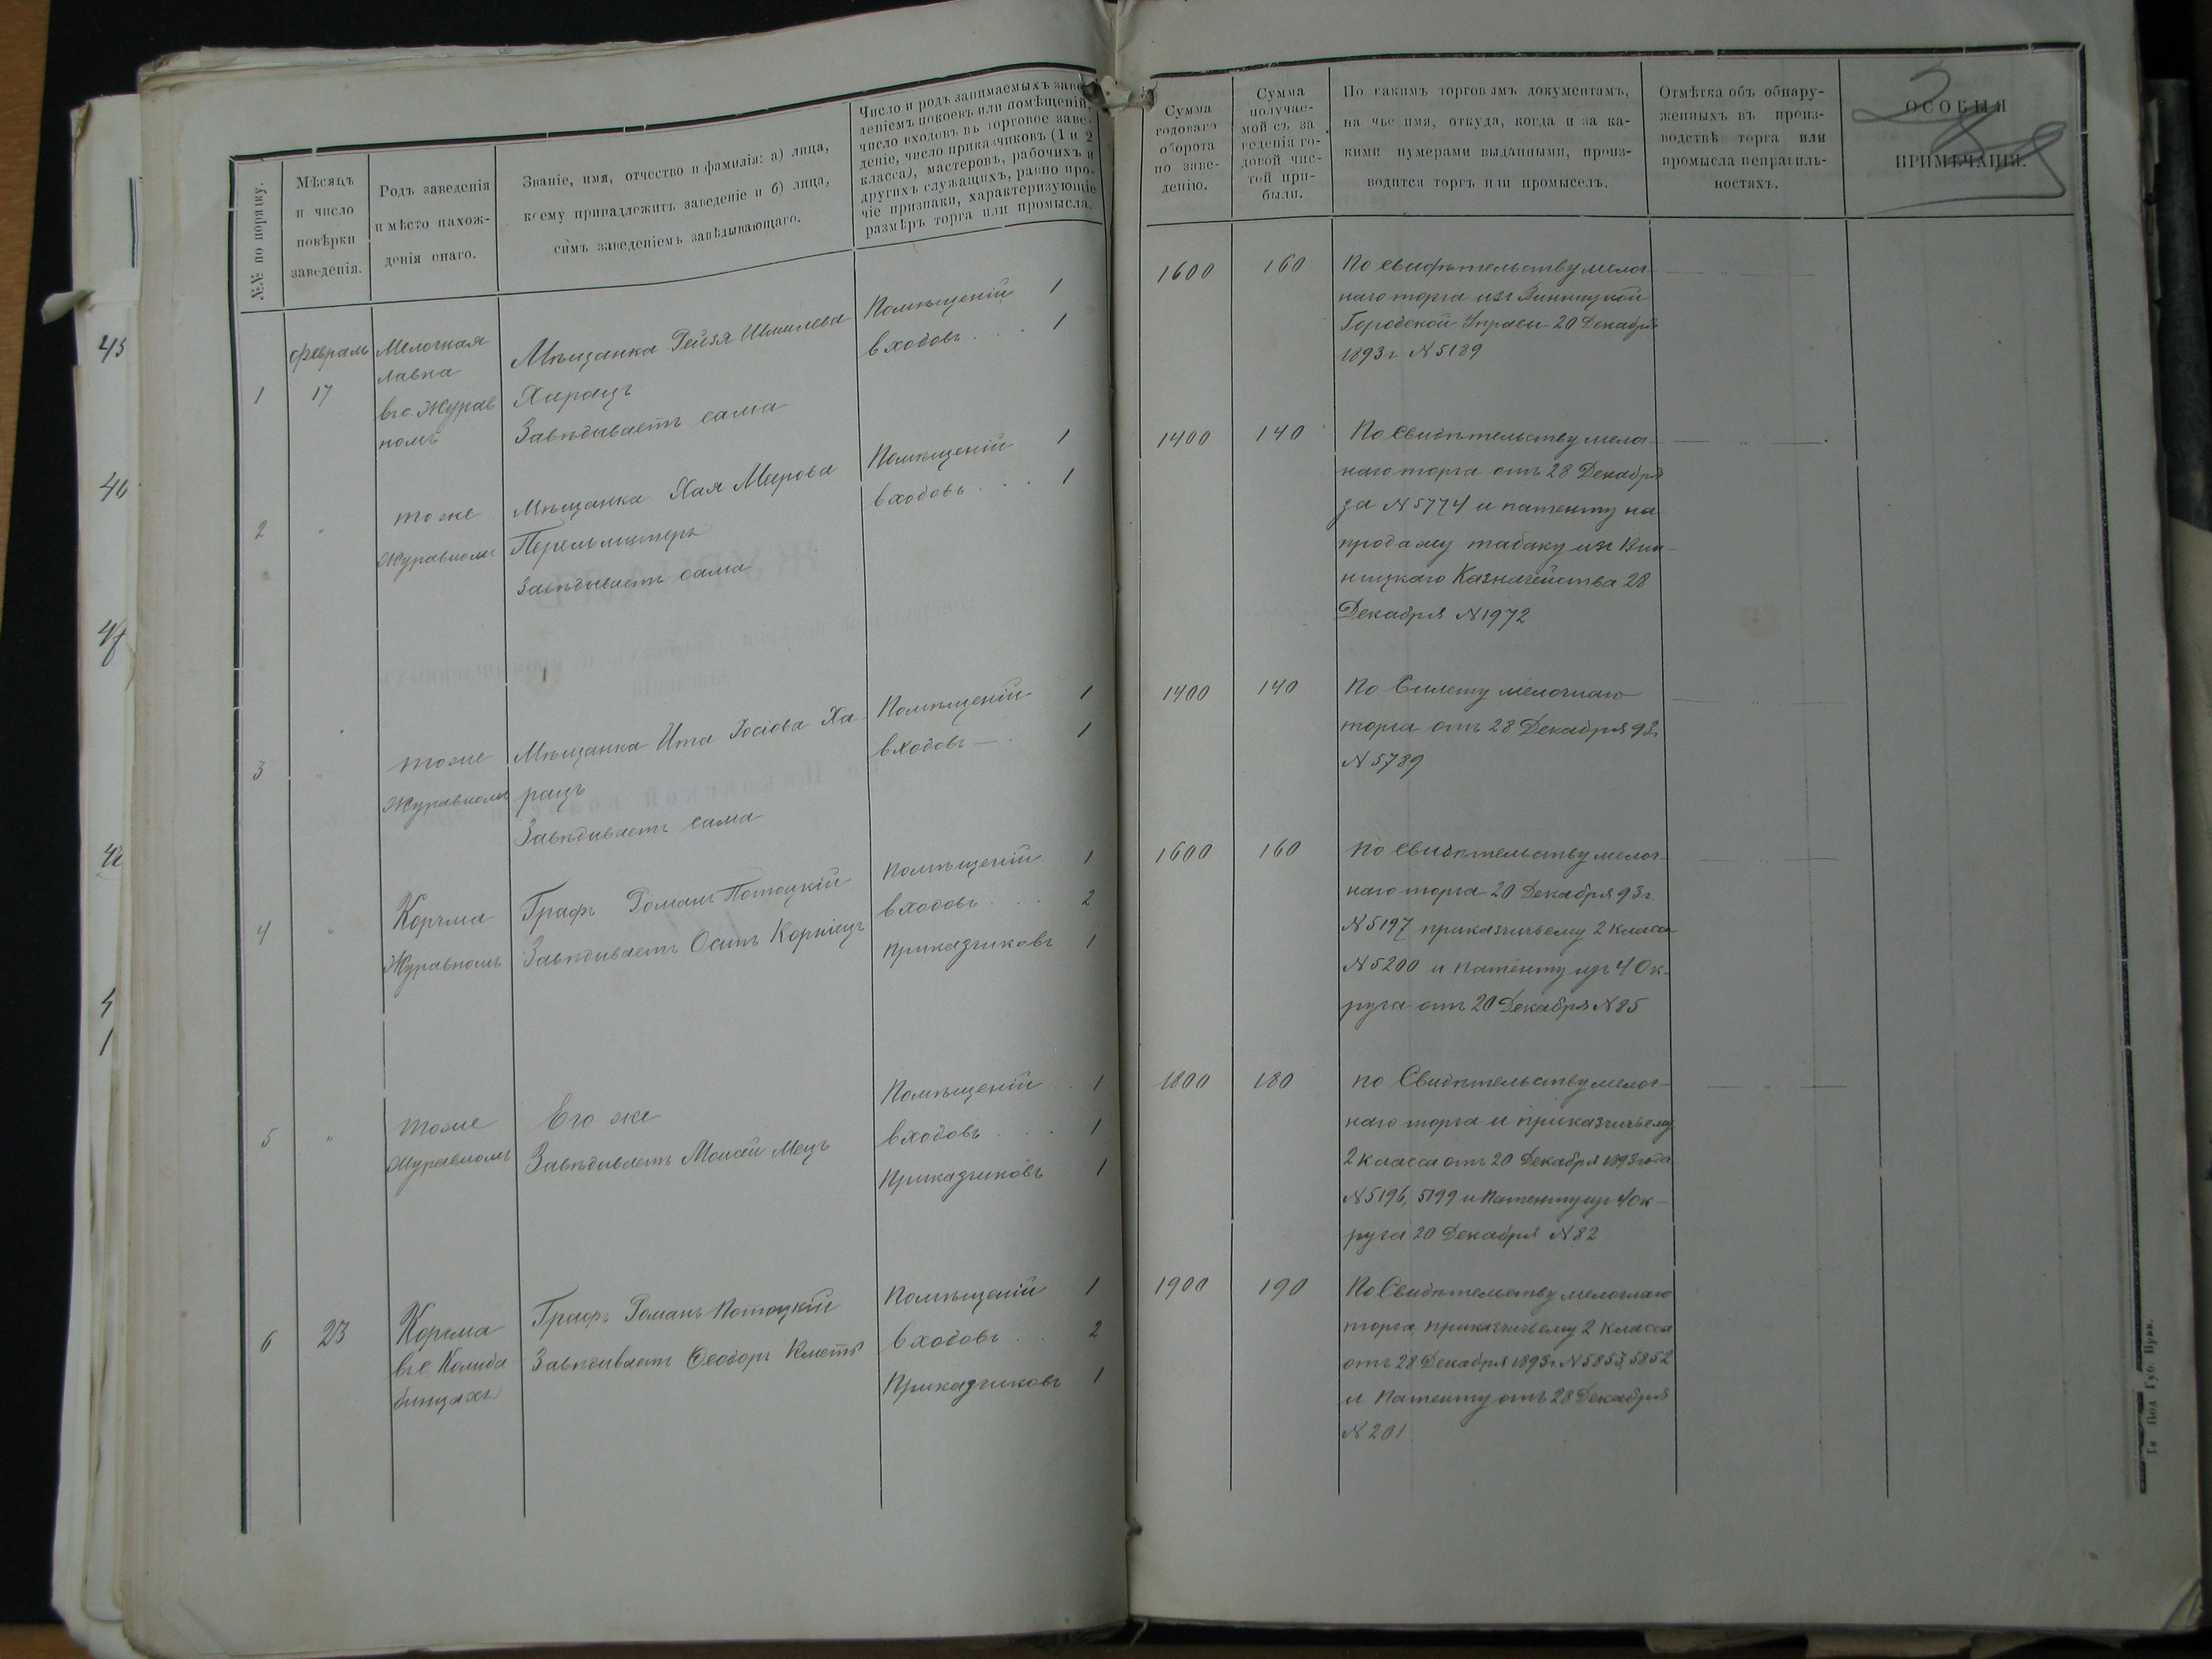 №№ по порядку.
Мѣсяцъ
и число
повѣрки
заведенія.
Родъ заведенія
и мѣсто нахож-
денія онаго.
Званіе, имя, отчество и фамилія: а) лица,
коему принадлежитъ заведеніе и б) лица,
симъ заведеніемъ завѣдывающаго.
Число и родъ занимаемыхъ заве-
деніемъ покоевъ или помѣщеній,
число входовъ въ торговое заве-
деніе, число приказчиковъ (1 и 2
класса), мастеровъ, рабочихъ и
другихъ служащихъ, равно про-
чіе признаки, характеризующіе
размѣръ торга или промысла.
Сумма
годоваго
оборота
по заве-
денію.
Сумма
получае-
мой съ за
веденія го-
довой чис-
той при-
были.
По какимъ торговымъ документамъ,
на чье имя, откуда, когда и за ка-
кими нумерами выданными, произ-
водится торгъ или промыселъ.
Отмѣтка объ обнару-
женныхъ въ произ-
водствѣ торга или
промысла неправиль-
ностяхъ.
ОСОБЫЯ
ПРИМѢЧАНІЯ.
1
Февраль
17
Мелочная
лавка
въ с. Журав
номъ
Мѣщанка Рейзя Шмилева
Харацъ
Завѣдываетъ сама
Помѣщеній 1
входовъ . . 1
1600
160
По свидѣтельству мелоч-
наго торга изъ Винницкой
Городской Управы 20 Декабря
1893 г. N 5189
2
"
тоже
Журавномъ
Мѣщанка Хая Меерова
Перельмитеръ
Завѣдываетъ сама
Помѣщеній 1
входовъ . . . 1
1400
140
По Свидѣтельству мелоч-
наго торга отъ 28 Декабря
за N 5774 и патенту на
продажу табаку изъ Вин-
ницкаго Казначейства 28
Декабря N 1972
3
"
тоже
Журавномъ
Мѣщанка Ита Іосіова Ха-
рацъ
Завѣдываетъ сама
Помѣщеній 1
входовъ — . 1
1400
140
По Билету мелочнаго
торга отъ 28 Декабря 93 г.
N 5789
4
"
Корчма
Журавномъ
Графъ Романъ Потоцкій
Завѣдываетъ Осипъ Корніецъ
Помѣщеній 1
входовъ . . . 2
приказчиковъ 1
1600
160
По свидѣтельству мелоч-
наго торга 20 Декабря 93 г.
N 5197 приказчичьему 2 класса
N 5200 и патенту изъ 4 Ок-
руга отъ 20 Декабря N 85
5
"
тоже
Журавномъ
Его же
Завѣдываетъ Мецъ
Помѣщеній . . 1
входовъ . . . 1
Приказчиковъ 1
1800
180
по Свидѣтельству мелоч-
наго торга и приказчичьему
2 класса отъ 20 Декабря 1893 года
N 5196, 5199 и патенту изъ 4 Ок-
руга 20 Декабря N 82
6
23
Корчма
въ с. Калита-
бинцахъ
Графъ Романъ Потоцкій
Завѣдываетъ Ѳеодоръ Кметь
Помѣщеній 1
входовъ . . 2
Приказчиковъ 1
1900
190
По Свидѣтельству мелочнаго
торга, приказчичьему 2 класса
отъ 28 Декабря 1893 г. N 5853, 5852
и Патенту отъ 28 Декабря
N 201
Ти Под Губ. Прав.